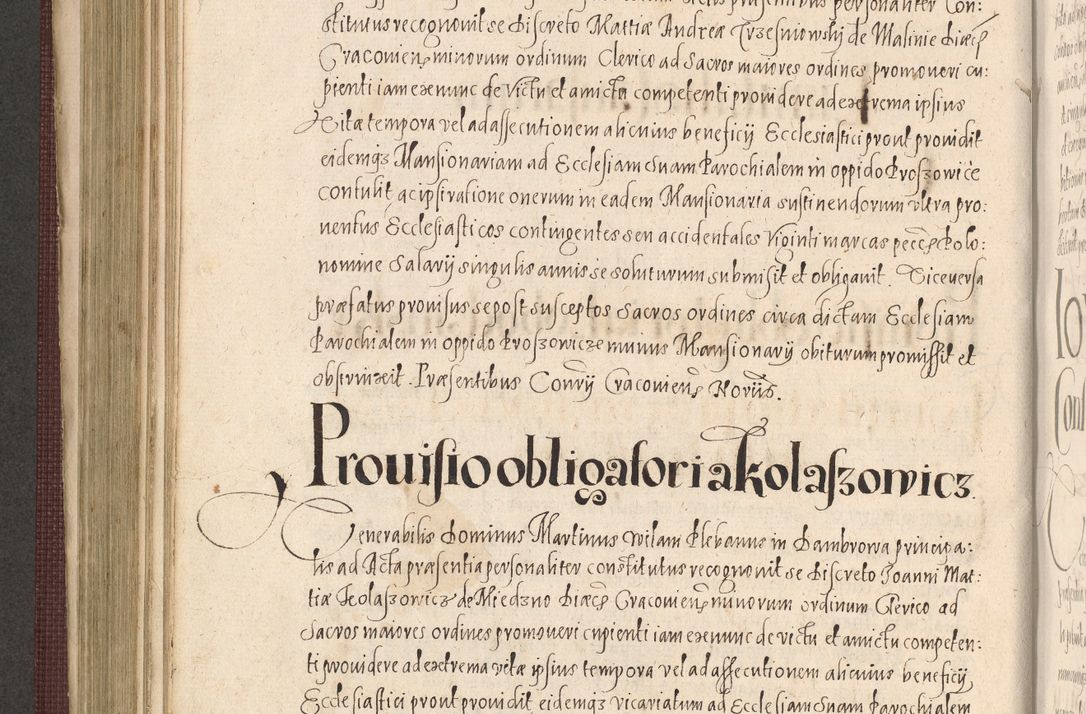 stitutus recognovit se discreto Mattiæ Andreæ Trzesniowsky de Malinie diæc
Cracovien minorum ordinum Clerico ad Sacros maiores ordines promoveri cu:
pienti iam ex nunc de victu et amictu competenti providere ad extrema ipsius
Vitæ tempora vel ad assecutionem alicuius beneficij Ecclesiastici prout providit
eidemqz Mansionariam ad Ecclesiam suam Parochialem in oppido Proszowicze
contulit ac ipsi ratione onerum in eadem Mansionaria sustinendorum ultra pro:
ventus Ecclesiasticos contingentes seu accidentales Viginti marcas pecc Polo:
nomine Salarij singulis annis se soluturum submisit et obligavit. Vice versa
præfatus provisus se post susceptos Sacros ordines circa dictam Ecclesiam
Parochialem in oppido Proszowicze munus Mansionarij obiturum promissit et
obstrinxit. Præsentibus Conrij Cracovien Noriis.
Provisio obligatoria Kolaszowicz
Venerabilis Dominus Martinus Wilam Plebanus in Dambrowa principa:
lis ad Acta præsentia personaliter constitutus recognovit se discreto Joanni Mat:
tiæ Kolaszowicz de Miedzno diæc Cracovien minorum ordinum Clerico ad
Sacros maiores ordines promoveri cupienti iam ex nunc de victu et amictu competen:
ti providere ad extrema vitæ ipsius tempora vel ad assecutionem alicuius beneficij
Ecclesiastici prout providit eidemqz vicariatum ad Ecclesiam suam Parochialem